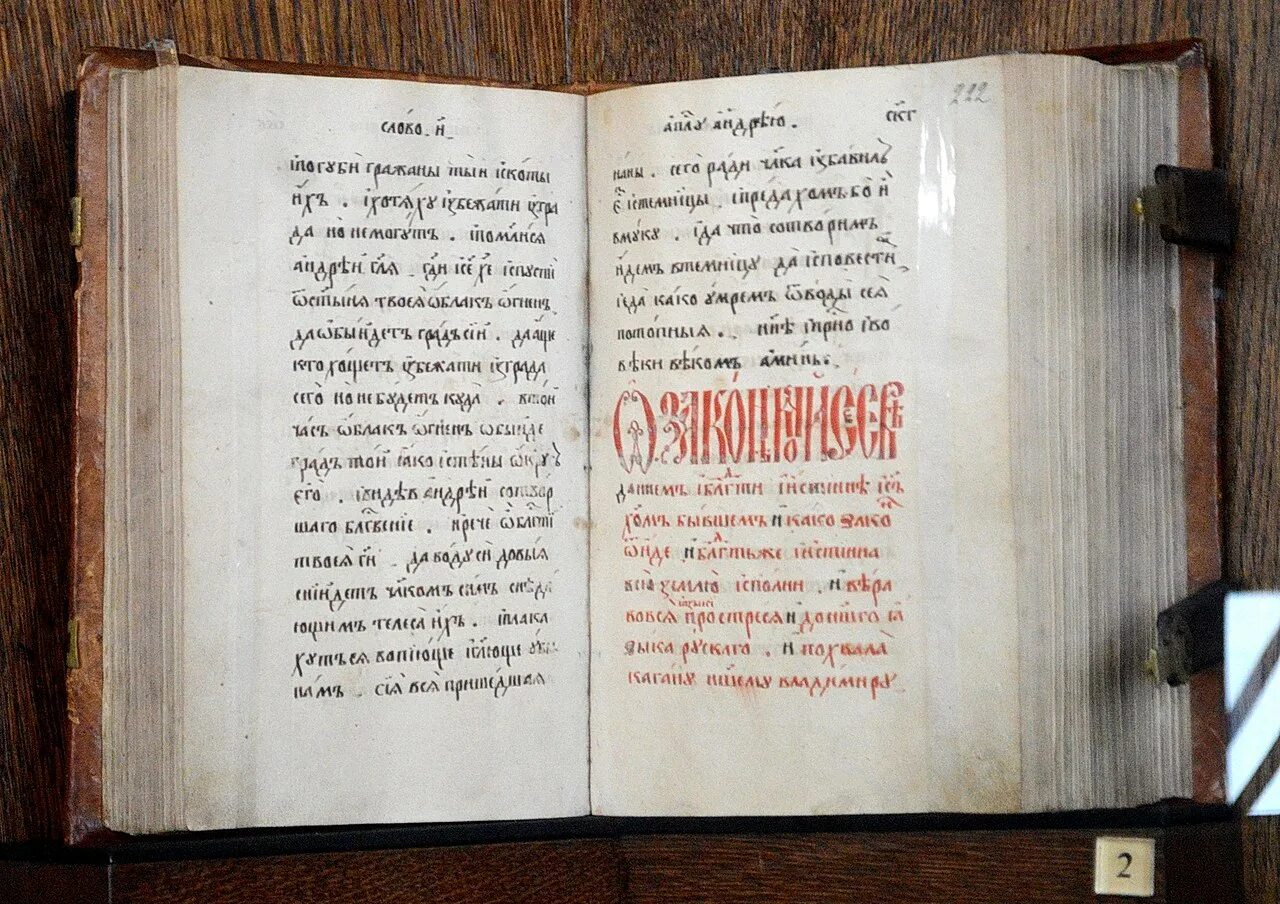 слово. и҃
и погуби гражаны ты и скоты
ихъ . и хотяху избежати из гра
да но не могутъ . и помлися
андрѣи гл҃я . гд҃и іс҃е хе испусти
ѿ ст҃ыня твоея ѡблакъ ѡгненъ
да ѡбыидетъ градъ сіи . да аще
кто хощетъ избежати из града
сего но не будетъ куда . в тои
часъ ѡблакъ ѡгненъ ѡбыиде
градъ тои яко и стѣны ѡкр
его . и видѣв андрѣи сотвор
шаго блг҃вение . и рече ѡ блг҃ти
твоея гд҃и да воду си довыя
снидетъ чл҃комъ симъ снѣда
ющимъ телеса ихъ . и плака
хутъся вопіюще и гл҃юще увы
намъ . сія вся пришедшая
ап҃лу андрѣю . скг
222
наны . сего ради чл҃ка избавилъ
е ис темницы . и предахомъ бо и
в муку . и да что сотворимъ
идемъ в темницу да исповести
егда како умремъ ѿ воды сея
потопныя . нн҃ѣ и прно и во
вѣки вѣкомъ аминь:
Ѡ законѣ моисеѡмъ
даннемъ и блг҃ти и истиннѣ іс҃ъ
хо҃мъ бывшемъ и како зако
ѿиде и блг҃ть же и истинна
всю землю исполни . и вѣра
во вся языки простреся и до нш҃го ꙗ
зыка рускаго . и похвала
кагану нш҃ему владимиру
2